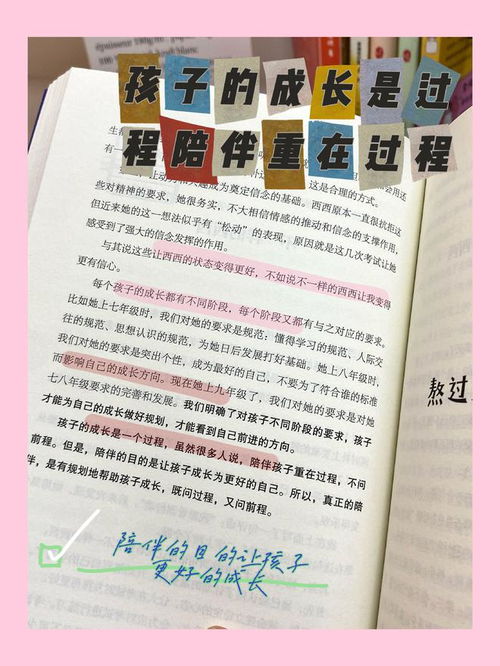 孩子的成长是过
程陪伴重在过程
这是合理的方式。
成为奠定信念的基础。西西原本一直很抗拒这
些对精神的要求，她很务实，不大相信情感的推动和信念的支撑作用，
但近来她的这一想法似乎有“松动”的表现，原因就是这几次考试让她
感受到了强大的信念发挥的作用。
与其说这些让西西的状态变得更好，不如说不一样的西西让我变得
更有信心。
每个孩子的成长都有不同阶段，每个阶段又都有与之对应的要求。
比如她上七年级时，我们对她的要求是规范：懂得学习的规范、人际交
往的规范、思想认识的规范，为她日后发展打好基础。她上八年级时，
我们对她的要求是突出个性，成为最好的自己，不要为了符合谁的标准
而影响自己的成长方向。现在她上九年级了，我们对她的要求是对她
七八年级要求的完善和发展。我们明确了对孩子不同阶段的要求，孩子
才能为自己的成长做好规划，才能看到自己前进的方向。
孩子的成长是一个过程，虽然很多人说，陪伴孩子重在过程，不问
前程。但是，陪伴的目的是让孩子成长为更好的自己。所以，真正的陪
伴，是有规划地帮助孩子成长，既问过程，又问前程。
陪伴的目的让孩子
更好的成长
熬过